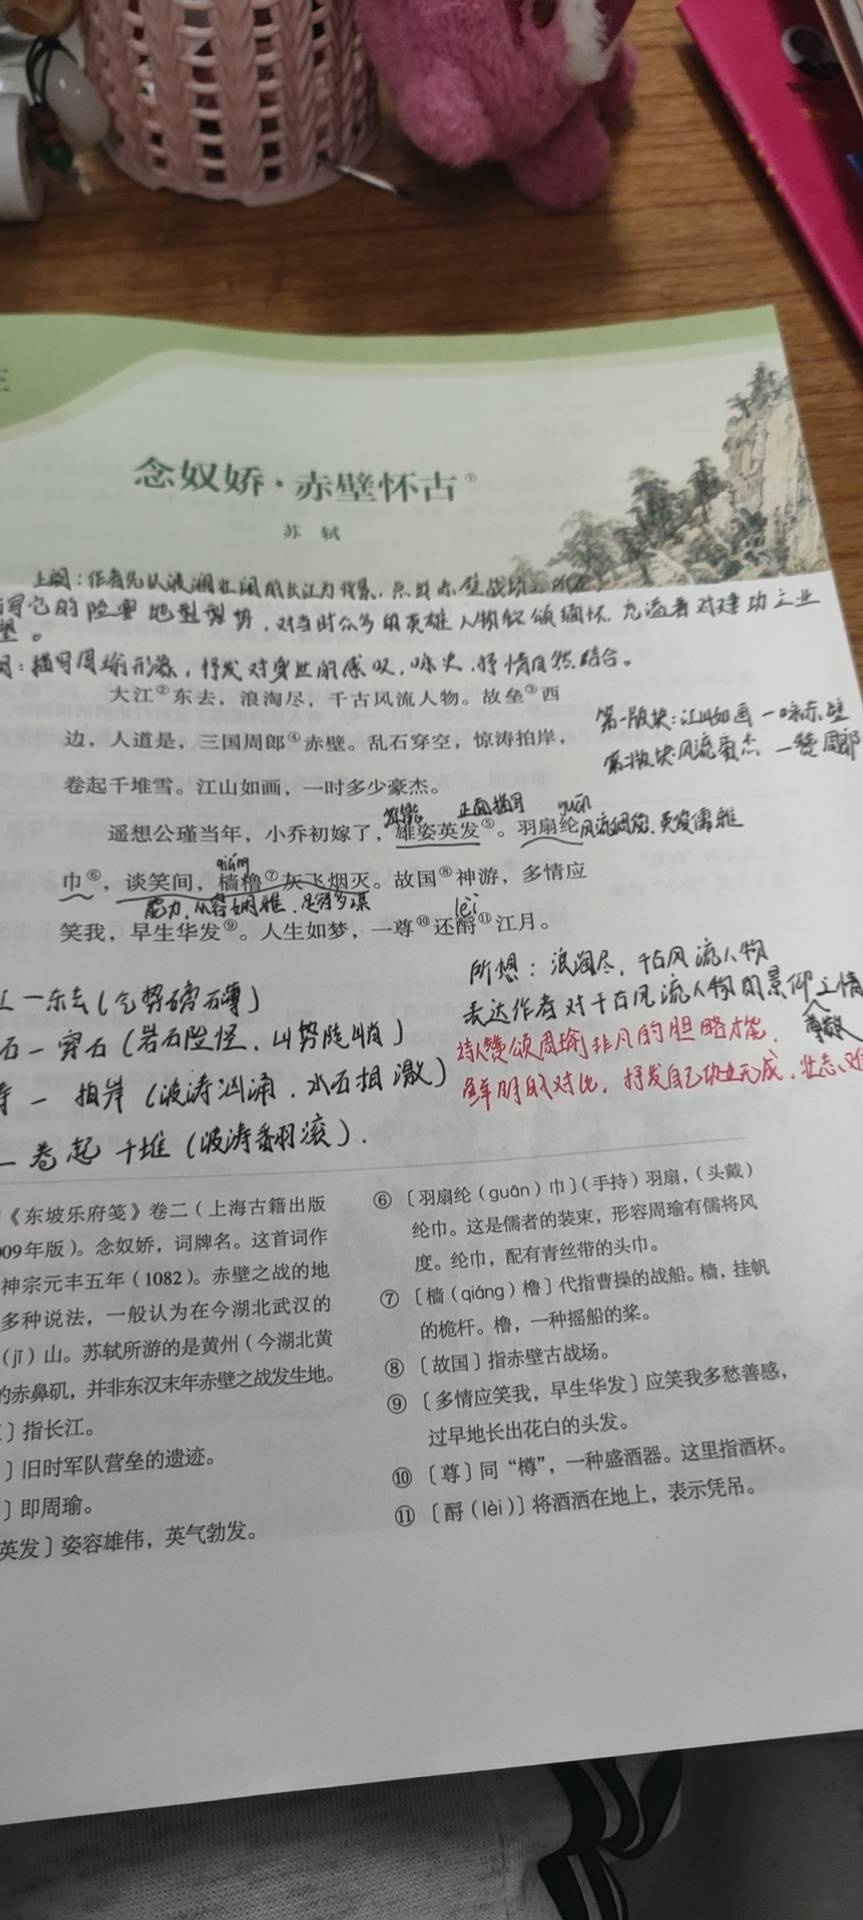 念奴娇·赤壁怀古①
苏 轼
上阕：作者先以波澜壮阔的长江为背景，点出赤壁战场
写它的险要地型型势，对当时众多的英雄人物歌颂缅怀，充溢着对建功立业
描写周瑜形象，抒发对身世的感叹，咏史、抒情自然结合。
大江②东去，浪淘尽，千古风流人物。故垒③西
边，人道是，三国周郎④赤壁。乱石穿空，惊涛拍岸，
卷起千堆雪。江山如画，一时多少豪杰。
第一版块：江山如画 — 咏赤壁
第二版块：风流豪杰 — 赞周郎
正面描写
guān
遥想公瑾当年，小乔初嫁了，雄姿英发⑤。羽扇纶
风流倜傥、英俊儒雅
qiáng
巾⑥，谈笑间，樯橹⑦灰飞烟灭。故国⑧神游，多情应
能力，从容娴雅、足智多谋
lèi
笑我，早生华发⑨。人生如梦，一尊⑩还酹⑪江月。
所想：浪淘尽，千古风流人物
表达作者对千古风流人物的景仰之情
尊敬
诗人赞颂周瑜非凡的胆略才能，
鲜明的对比，抒发自己功业无成，壮志
江 — 东去（气势磅礴）
石 — 穿石（岩石险怪，山势陡峭）
— 拍岸（波涛汹涌，水石相激）
— 卷起千堆（波涛翻滚）.
《东坡乐府笺》卷二（上海古籍出版
09年版）。念奴娇，词牌名。这首词作
神宗元丰五年（1082）。赤壁之战的地
多种说法，一般认为在今湖北武汉的
（jī）山。苏轼所游的是黄州（今湖北黄
的赤鼻矶，并非东汉末年赤壁之战发生地。
〕指长江。
〕旧时军队营垒的遗迹。
〕即周瑜。
英发〕姿容雄伟，英气勃发。
⑥〔羽扇纶（guān）巾〕（手持）羽扇，（头戴）
纶巾。这是儒者的装束，形容周瑜有儒将风
度。纶巾，配有青丝带的头巾。
⑦〔樯（qiáng）橹〕代指曹操的战船。樯，挂帆
的桅杆。橹，一种摇船的桨。
⑧〔故国〕指赤壁古战场。
⑨〔多情应笑我，早生华发〕应笑我多愁善感，
过早地长出花白的头发。
⑩〔尊〕同“樽”，一种盛酒器。这里指酒杯。
⑪〔酹（lèi）〕将酒洒在地上，表示凭吊。